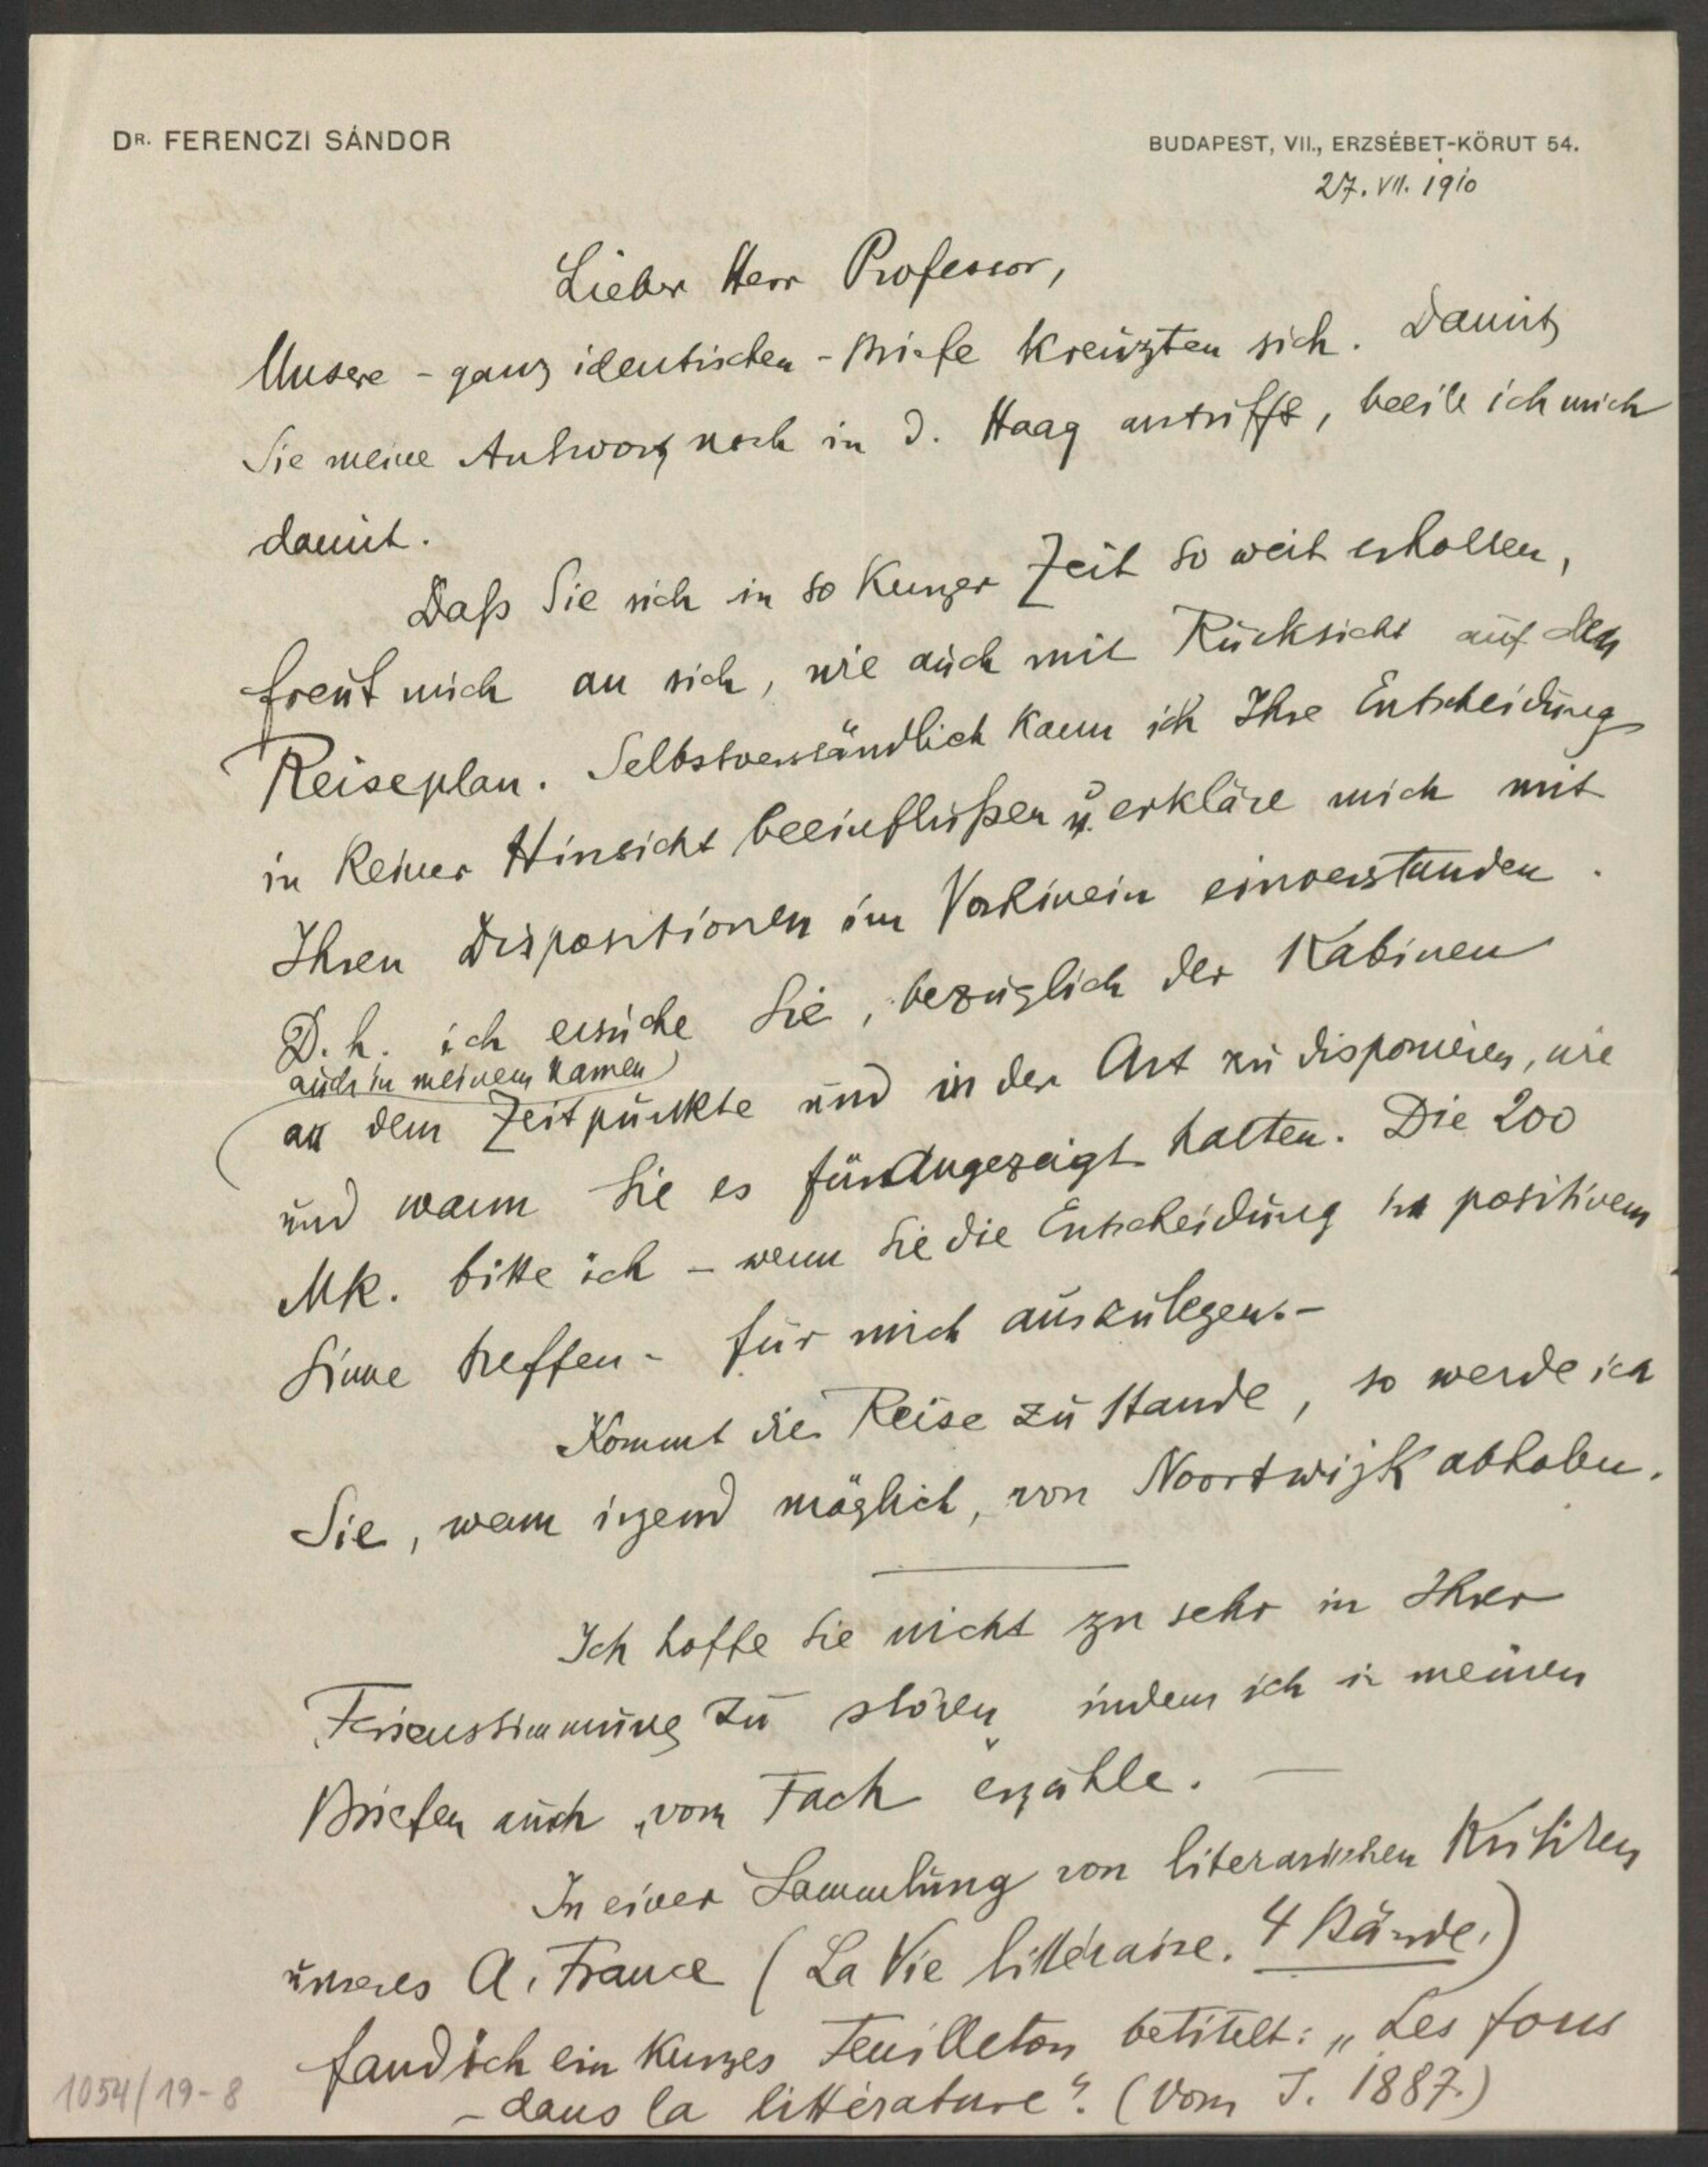 DR. FERENCZI SÁNDOR
BUDAPEST, VII., ERZSÉBET-KÖRUT 54.
27. VII. 1910
Lieber Herr Professor,
Unsere - ganz identischen - Briefe kreuzten sich. Damit
Sie meine Antwort noch in d. Haag antrifft, beeile ich mich
damit.
Daß Sie sich in so kurzer Zeit so weit erholten,
freut mich an sich, wie auch mit Rücksicht auf den
Reiseplan. Selbstverständlich kann ich Ihre Entscheidung
in keiner Hinsicht beeinflußen u. erkläre mich mit
Ihren Dispositionen im Vorhinein einverstanden.
D. h. ich ersuche Sie, bezüglich der Kabinen
auch in meinem Namen
an dem Zeitpunkte und in der Art zu disponieren, wie
und wann Sie es für angezeigt halten. Die 200
Mk. bitte ich - wenn Sie die Entscheidung in positivem
Sinne treffen - für mich auszulegen. -
Kommt die Reise zu Stande, so werde ich
Sie, wenn irgend möglich, von Noortwijk abholen.
Ich hoffe Sie nicht zu sehr in Ihrer
Ferienstimmung zu stören indem ich in meinen
Briefen auch „vom Fach" erzähle. —
In einer Sammlung von literarischen Kritiken
unseres A. France (La Vie littéraire. 4 Bände.)
fand ich ein kurzes Feuilleton betitelt: „Les fous
- dans la littérature". (Vom J. 1887.)
1054/19-8